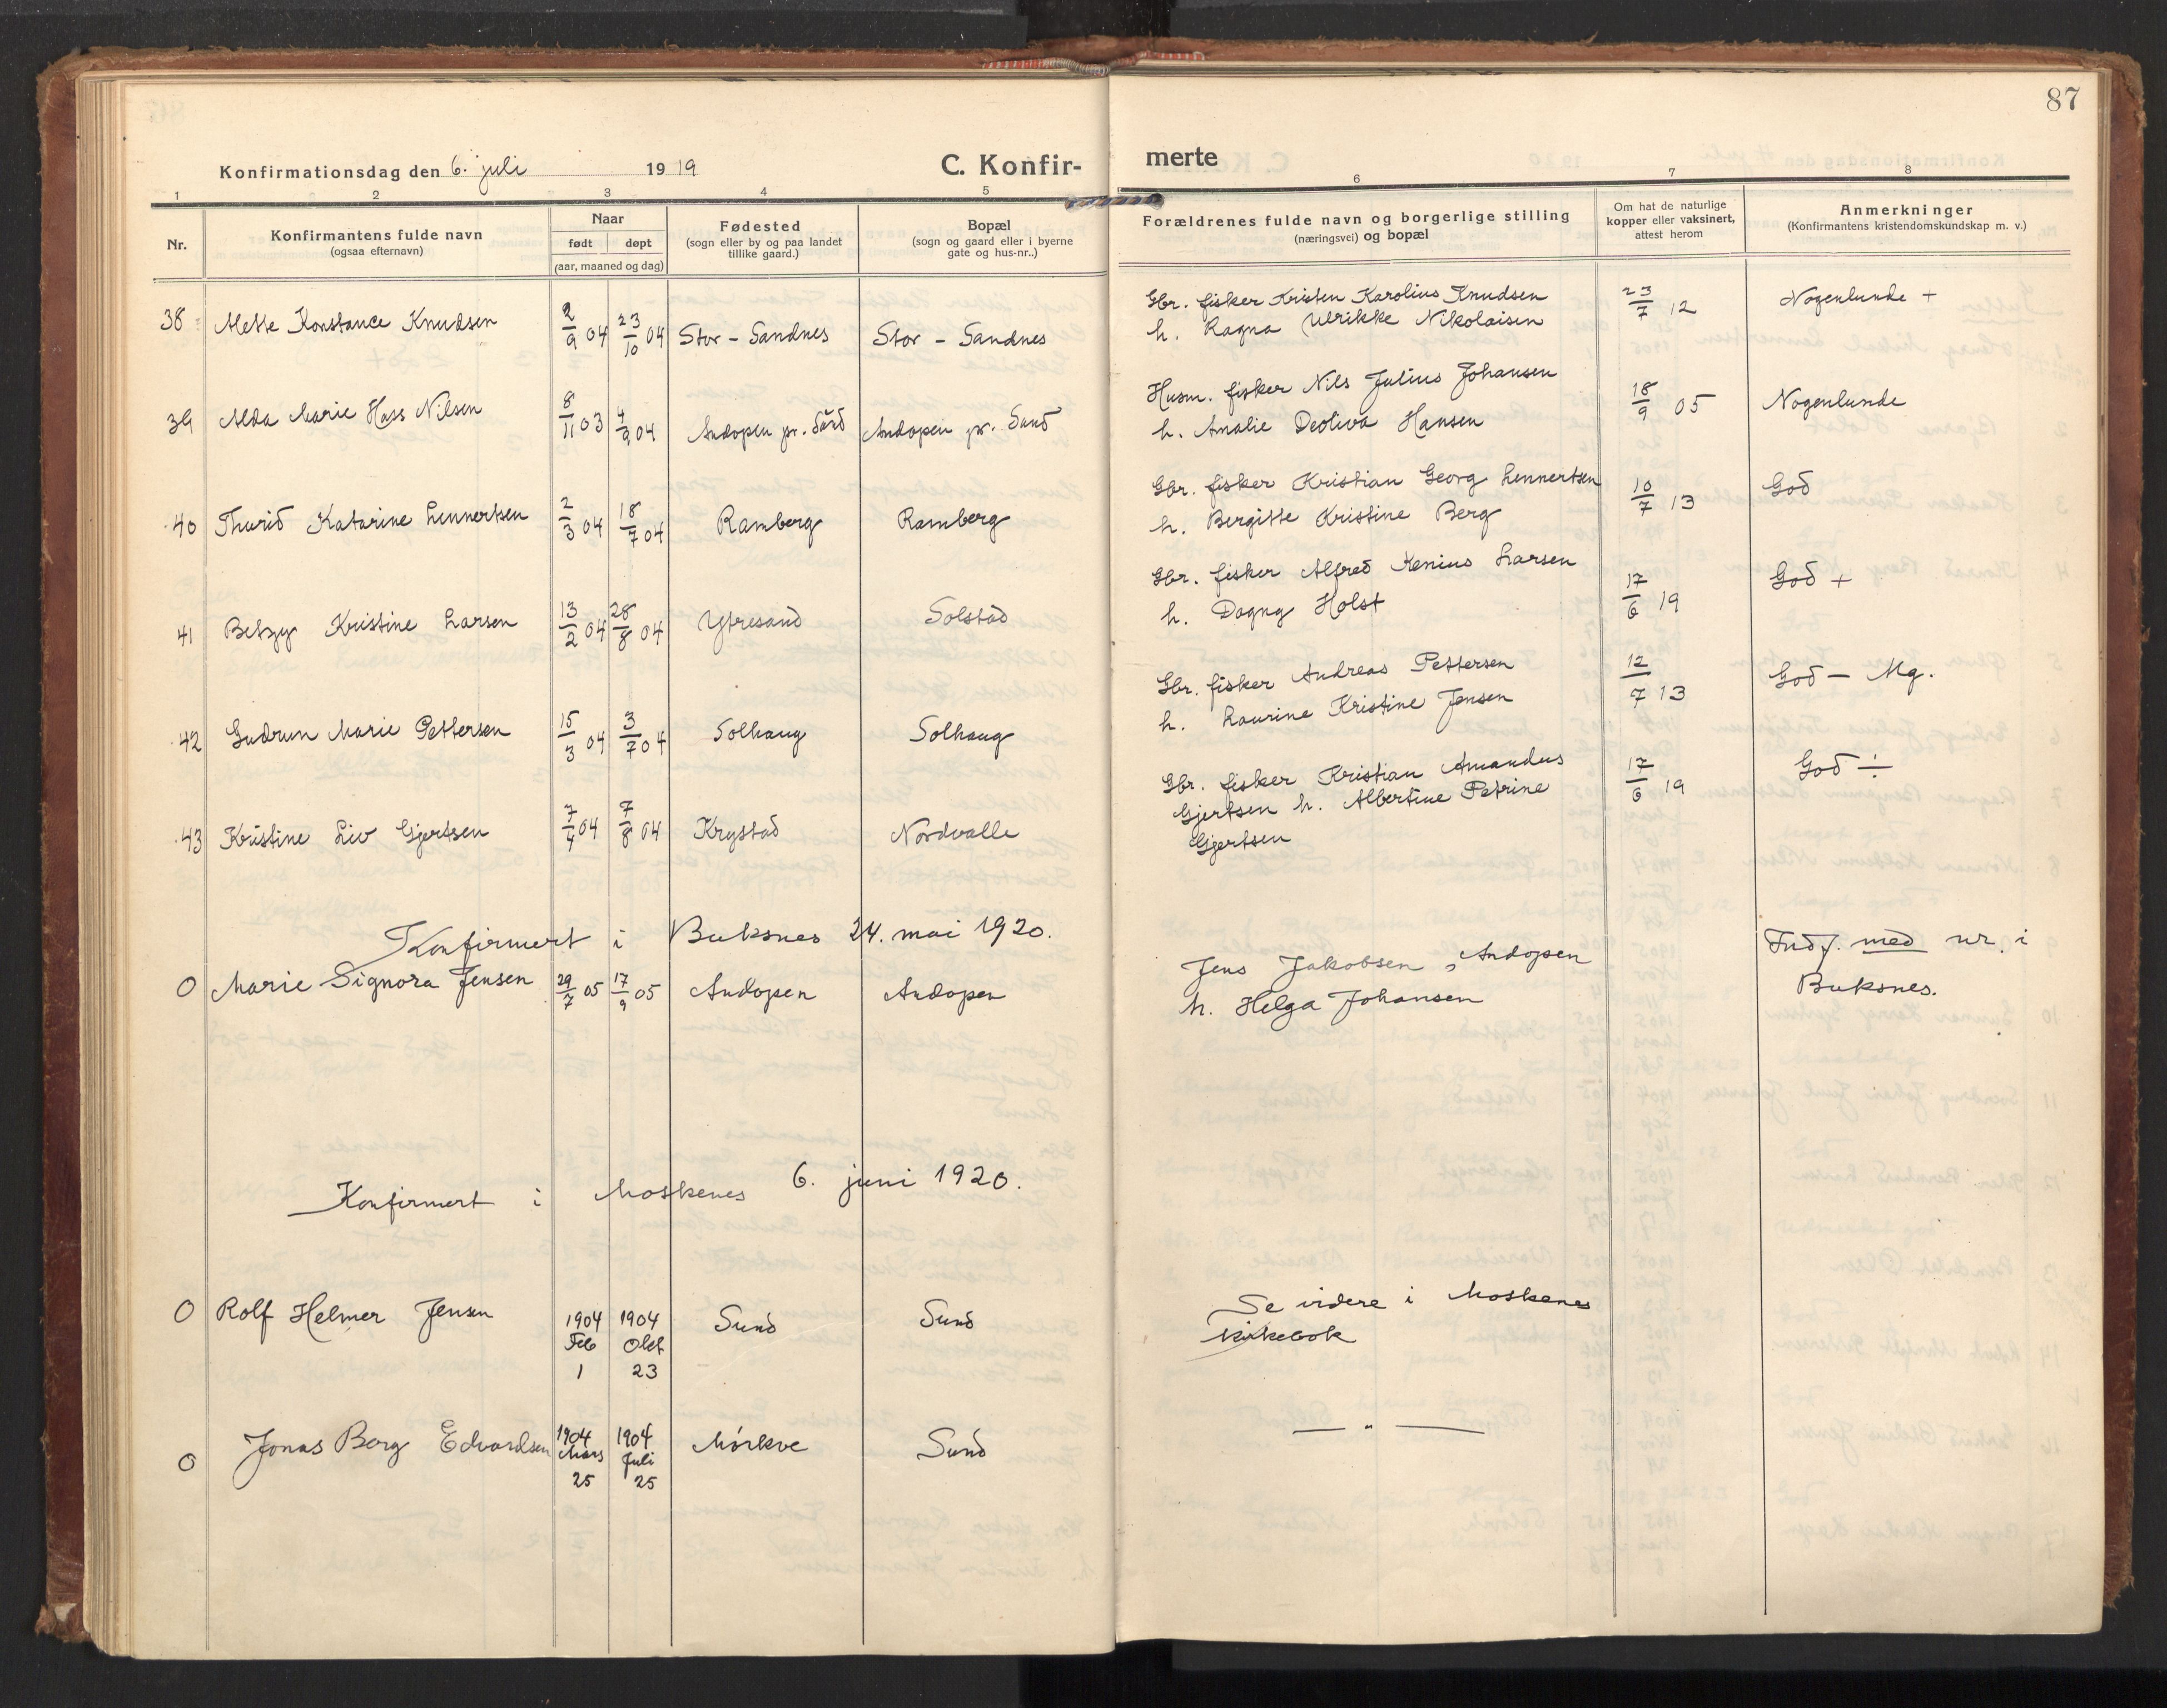 87
Konfirmationsdag den 6. juli 1919 C. Konfir- merte
1 2 3 4 5 6 7 8
Nr. Konfirmantens fulde navn (ogsaa efternavn) Naar født døpt (aar, maaned og dag) Fødested (sogn eller by og paa landet tillike gaard.) Bopæl (sogn og gaard eller i byerne gate og hus-nr..) Forældrenes fulde navn og borgerlige stilling (næringsvei) og bopæl Om hat de naturlige kopper eller vaksinert, attest herom Anmerkninger (Konfirmantens kristendomskundskap m. v.)
38 Mette Konstance Knudsen 2/9 04 23/10 04 Stor - Sandnes Stor - Sandnes Gbr. fisker Kristen Karolius Knudsen 23/7 12 Nogenlunde +
h. Ragna Ulrikke Nikolaisen
39 Alda Marie Hass Nilsen 8/11 03 4/9 04 Andopen pr. Sund Andopen pr. Sund Husm. fisker Nils Julius Johansen 18/9 05 Nogenlunde
h. Amalie Deoliva Hansen
40 Thurid Katarine Lennertsen 2/3 04 18/7 04 Ramberg Ramberg Gbr. fisker Kristian Georg Lennertsen 10/7 13 God
h. Bergitte Kristine Berg
41 Betzy Kristine Larsen 13/2 04 28/8 04 Ytresand Solstad Gbr. fisker Alfred Kenius Larsen 17/6 19 God +
h. Dagny Holst
42 Gudrun Marie Pettersen 15/3 04 3/7 04 Solhaug Solhaug Gbr. fisker Andreas Pettersen 12/7 13 God — Mg.
h. Laurine Kristine Jensen
43 Kristine Liv Gjertsen 7/4 04 7/8 04 Krystad Nordvalle Gbr. fisker Kristian Amandus 17/6 19 God ÷
Gjertsen h. Albertine Petrine
Gjertsen
Konfirmert i Buksnes 24. mai 1920.
0 Marie Signora Jensen 29/7 05 17/9 05 Andopen Andopen Jens Jakobsen, Andopen Indf. med nr. i
h. Helga Johansen Buksnes.
Konfirmert i Moskenes 6. juni 1920.
0 Rolf Helmer Jensen 1904 Feb 1 1904 Okt 23 Sund Sund Se videre i Moskenes
kirkebok
0 Jonas Berg Edvardsen 1904 Mars 25 1904 Juli 25 Mórkve Sund — " —